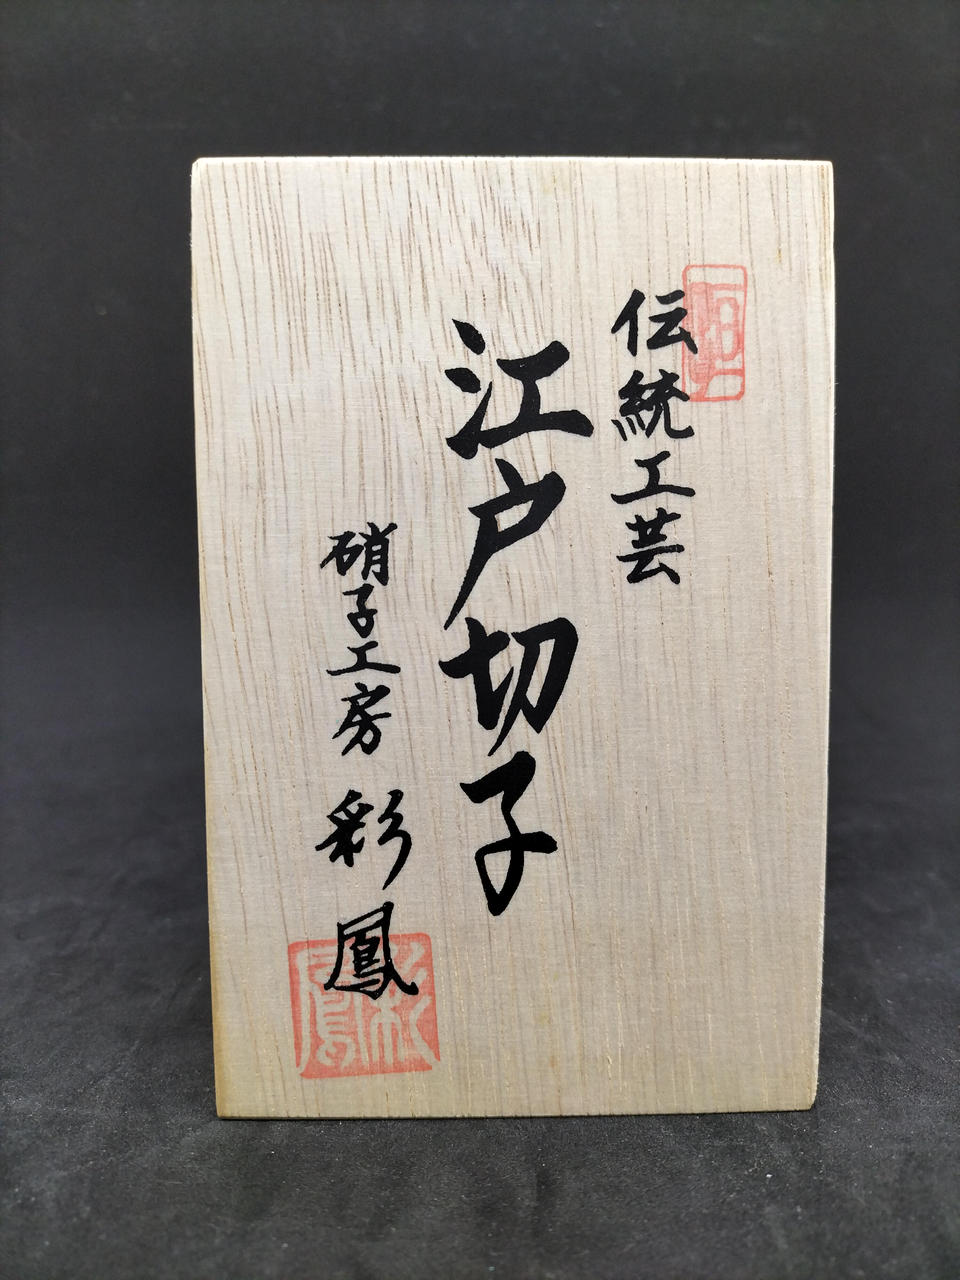 伝統工芸
江戸切子
硝子工房 彩鳳
彩鳳